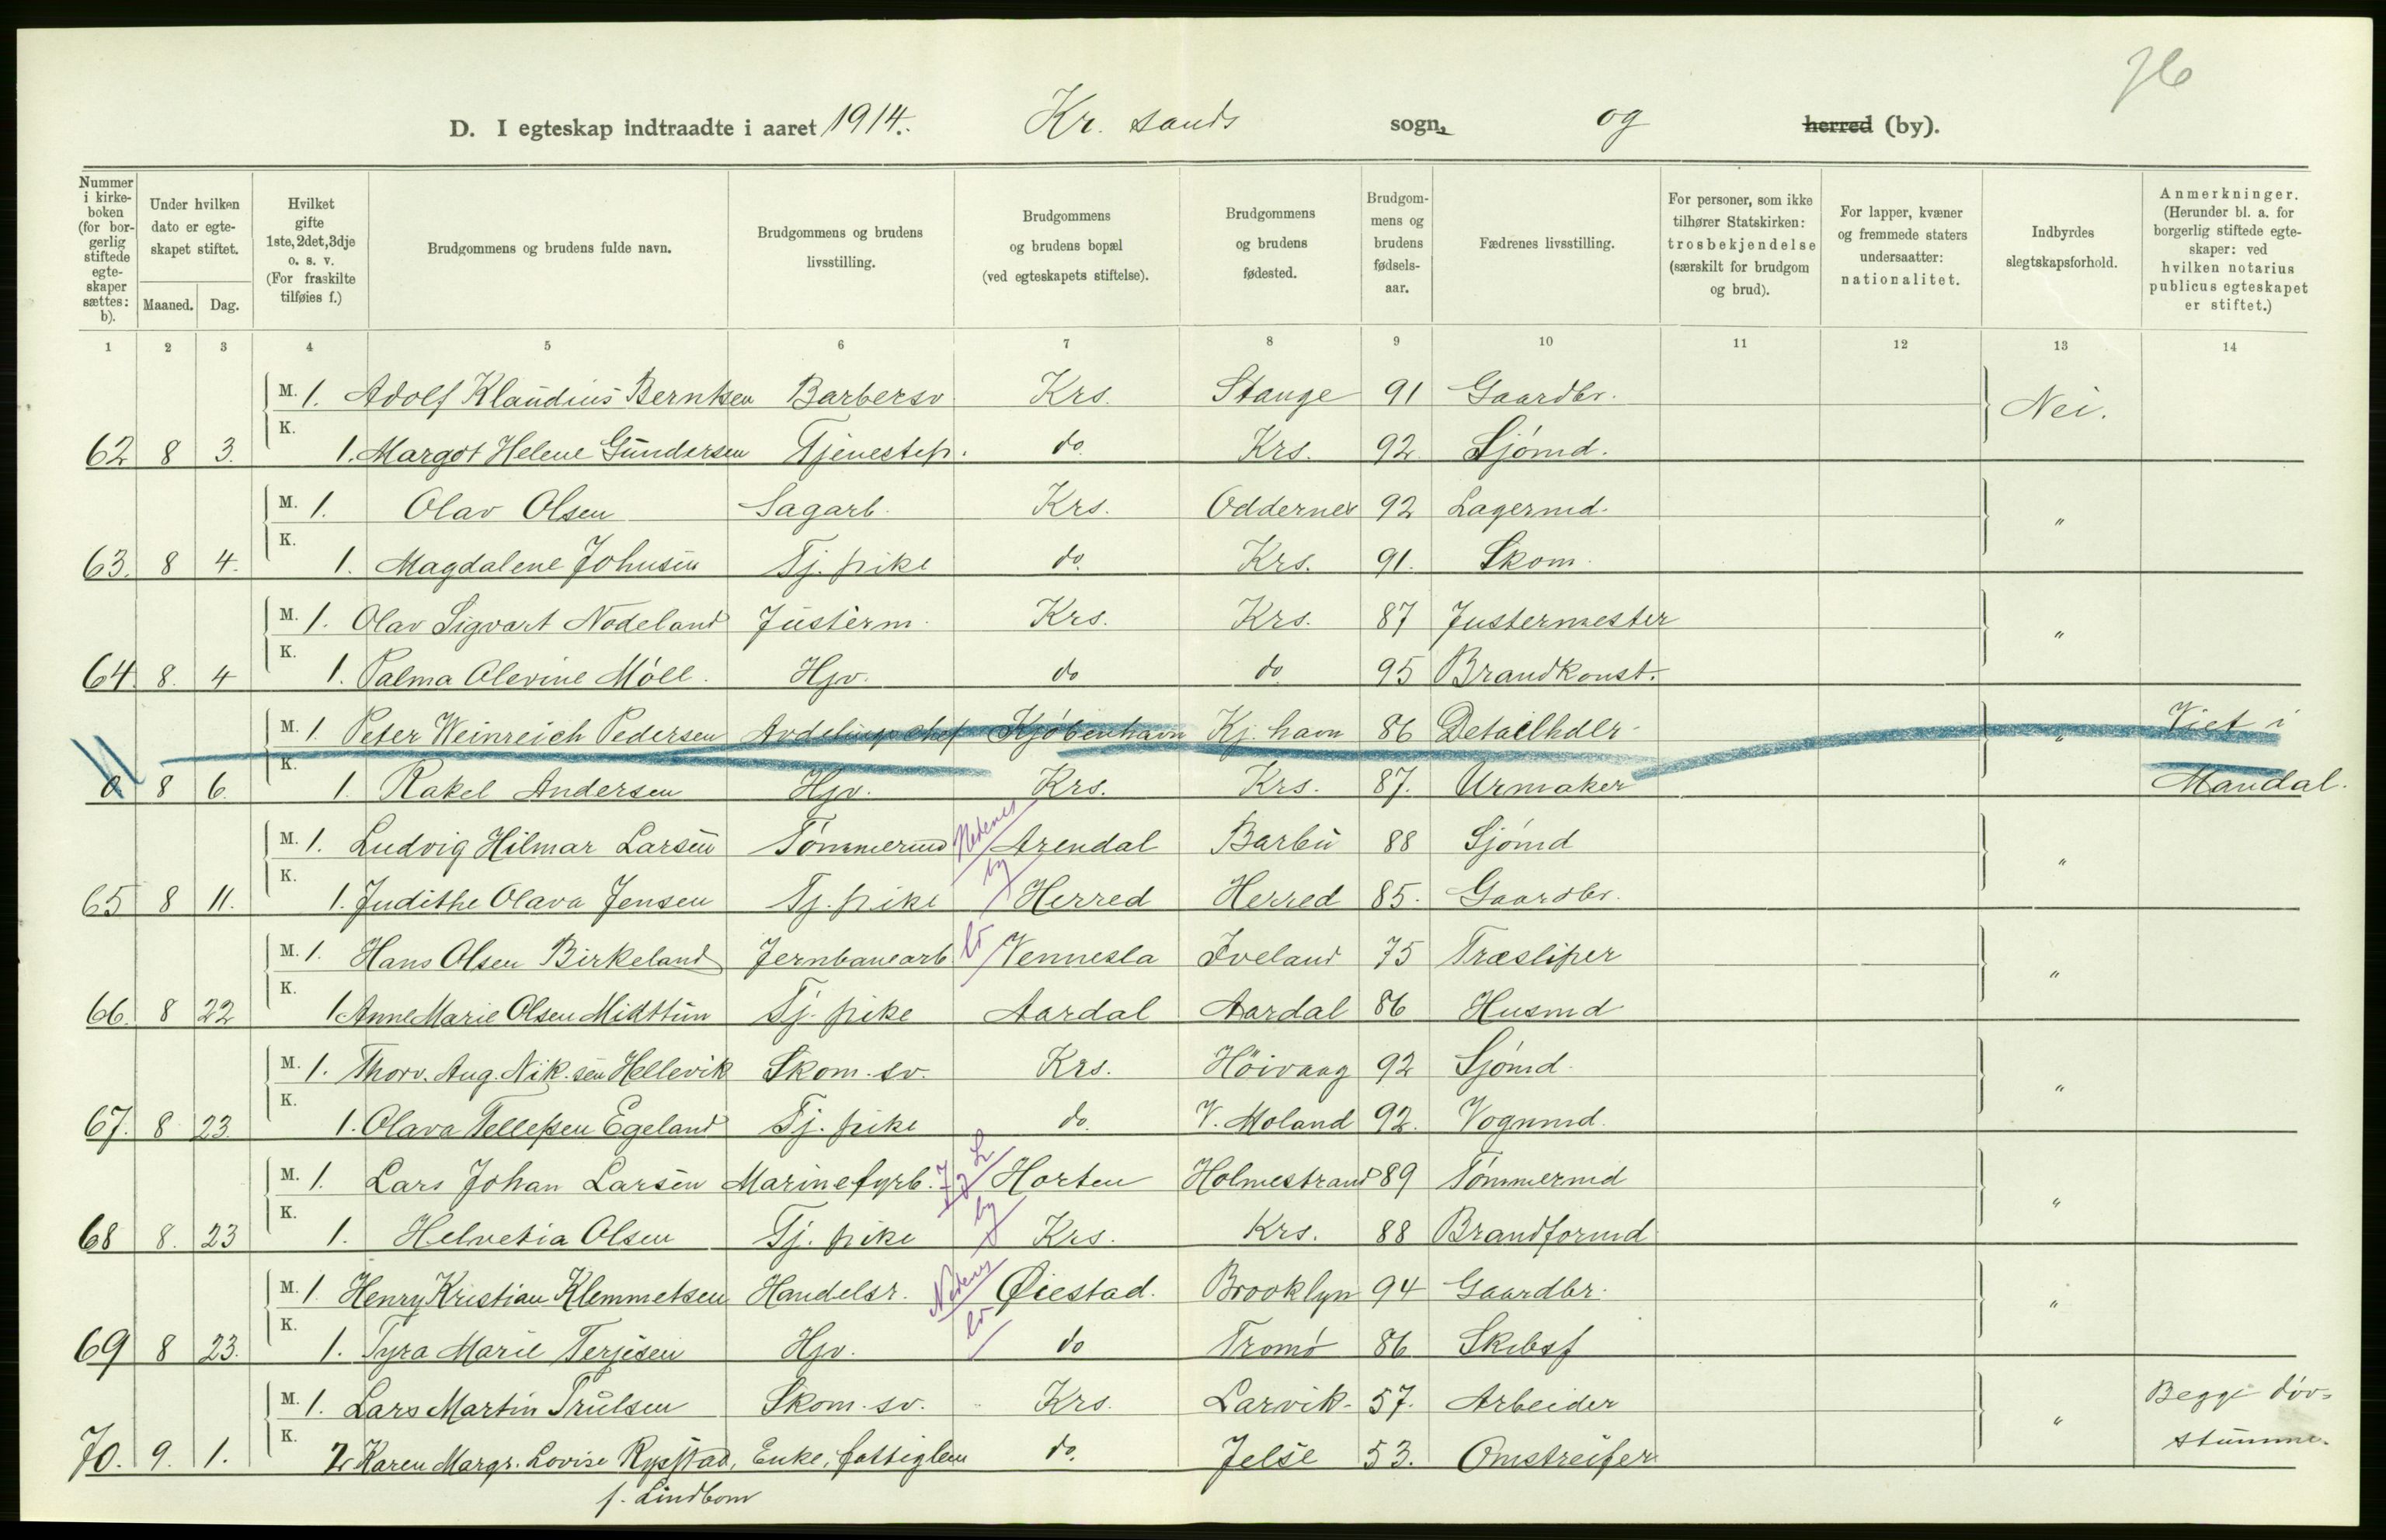 76
D. I egteskap indtraadte i aaret 1914. Kr. sands sogn, og herred (by).
Nummer i kirke-boken (for bor-gerlig stiftede egte-skaper sættes: b).
Under hvilken dato er egte-skapet stiftet.
Maaned. Dag.
Hvilket gifte 1ste, 2det, 3dje o. s. v. (For fraskilte tilføies f.)
Brudgommens og brudens fulde navn.
Brudgommens og brudens livsstilling.
Brudgommens og brudens bopæl (ved egteskapets stiftelse).
Brudgommens og brudens fødested.
Brudgom-mens og brudens fødsels-aar.
Fædrenes livsstilling.
For personer, som ikke tilhører Statskirken: trosbekjendelse (særskilt for brudgom og brud).
For lapper, kvæner og fremmede staters undersaatter: nationalitet.
Indbyrdes slegtskapsforhold.
Anmerkninger. (Herunder bl. a. for borgerlig stiftede egte-skaper: ved hvilken notarius publicus egteskapet er stiftet.)
1 2 3 4 5 6 7 8 9 10 11 12 13 14
M. 1. Adolf Klaudius Berntsen Barbersv. Krs. Stange 91 Gaardbr. Nei.
62 8 3. K. 1. Margot Helene Gundersen Tjenestep. do. Krs. 92. Sjómd.
M. 1. Olav Olsen Sagarb. Krs. Oddernes 92 Lagermd. "
63. 8 4. K. 1. Magdalene Johnsen Tj. pike do. Krs. 91. Skom.
M. 1. Olav Sigvart Nodeland Justerm. Krs. Krs. 87 Justermester "
64. 8. 4 K. 1. Palma Olevine Móll. Hjv. do do. 95 Brandkonst.
M. 1 Peter Weinreich Pedersen Avdelingschef Kjóbenhavn Kj. havn 86 Detailhdlr. " Viet i
0 8 6. K. 1. Rakel Andersen Hjv. Krs. Krs. 87. Urmaker Mandal.
M. 1. Ludvig Hilmar Larsen Tómmermd Nedenes by Arendal Barbu 88 Sjómd "
65 8 11. K. 1. Judithe Olava Jensen Tj. pike Herred Herred 85. Gaardbr.
M. 1. Hans Olsen Birkeland Jernbanearb Vennesla Iveland 75 Træsliper "
66. 8 22 K. 1 Anne Marie Olsen Midttun Tj. pike Aardal Aardal 86 Husmd
M. 1. Thorv. Aug. Nik.sen Hellevik Skom. sv. Krs. Höivaag 92 Sjómd. "
67. 8 23. K. 1. Olava Tellefsen Egeland Tj. pike do. V. Moland 92. Vognmd.
M. 1. Lars Johan Larsen Marinefyrb. J L by Horten Holmestrand 89 Tómmermd "
68 8. 23 K. 1. Helvetia Olsen Tj. pike Krs. Krs. 88 Brandformd.
M. 1 Henry Kristian Klemmetsen Handelsr. Nedenes Øiestad. Brooklyn 94 Gaardbr. "
69 8 23. K. 1. Tyra Marie Terjesen Hjv. do Tromó 86 Skibsf
M. 1. Lars Martin Trulsen Skom. sv. Krs. Larvik. 57. Arbeider " Begge döv=
70. 9. 1. K. 2 Karen Margr. Lovise Rypstad, Enke, fattiglem do. Jelse 53. Omstreifer stumme.
f. Lindbom